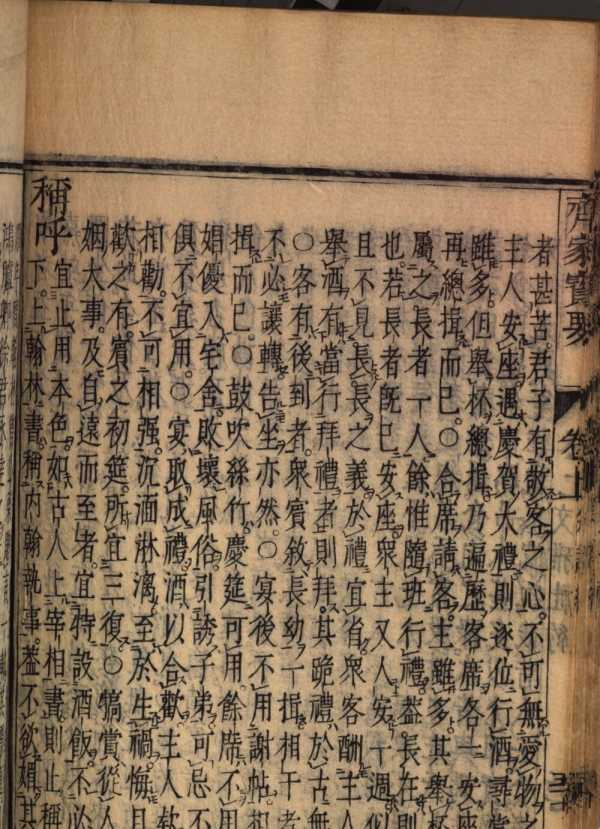 齊家寶要 卷上
者甚苦君子有敬客之心不可無愛物之
主人安座遇慶賀大禮則逐位行酒尋常
雖多但舉杯總揖乃遍歷客席各一安座
再總揖而已○合席請客主雖多其舉杯
屬之長者一人餘惟隨班行禮蓋長在則
也若長者既已安座衆主又人安一週似
且不見長長之義於禮宜省衆客酬主人
舉酒有當行拜禮者則拜其跪禮於古無
○客有後到者衆賓敘長幼一揖相干者
不必讓轉告坐亦然○宴後不用謝帖扣
揖而已○鼓吹絲竹慶筵可用餘席不用
娼優入宅舍敗壞風俗引誘子弟可忌不
俱不宜用○宴取成禮酒以合歡主人欽
相勸不可相强沉湎淋漓至於生禍悔且
歡之有賓之初筵所宜三復○犒賞從人
姻大事及自遠而至者宜特設酒飯不必
稱呼
宜止用本色如古人上宰相書則止稱
下上翰林書稱内翰執事蓋不欲媚其